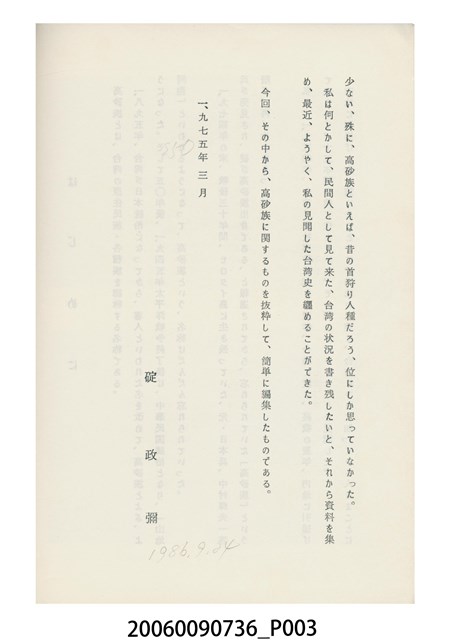 少ない、殊に、高砂族といえば、昔の首狩り人種だろう、位にしか思っていなかった。
私は何とかして、民間人として見て来た、台湾の状況を書き残したいと、それから資料を集
め、最近、ようやく、私の見聞した台湾史を纒めることができた。
今回、その中から、高砂族に関するものを抜粋して、簡単に編集したものである。
一、九七五年三月
碇政彌
1986.9.24
20060090736_P003